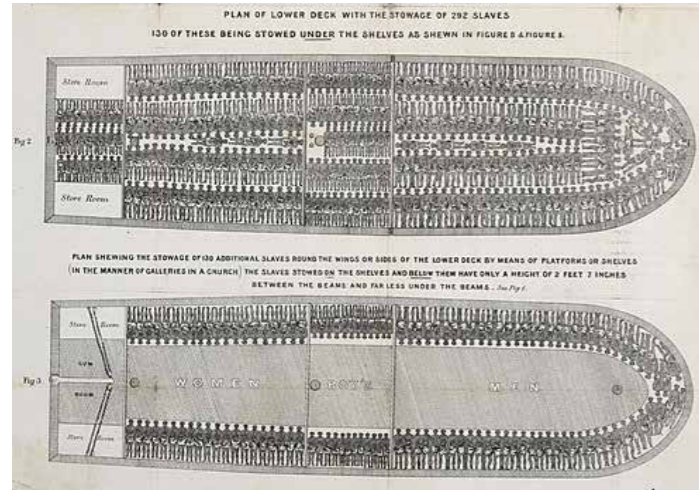 PLAN OF LOWER DECK WITH THE STOWAGE OF 292 SLAVES
130 OF THESE BEING STOWED UNDER THE SHELVES AS SHEWN IN FIGURE 5 & FIGURE 5.
Store Room
Fig 2
Store Room
PLAN SHEWING THE STOWAGE OF 130 ADDITIONAL SLAVES ROUND THE WINGS OR SIDES OF THE LOWER DECK BY MEANS OF PLATFORMS OR SHELVES
(IN THE MANNER OF GALLERIES IN A CHURCH) THE SLAVES STOWED ON THE SHELVES AND BELOW THEM HAVE ONLY A HEIGHT OF 2 FEET 7 INCHES
BETWEEN THE BEAMS AND FAR LESS UNDER THE BEAMS. See Fig 1.
Store Room
GUN
Fig 3
WOMEN BOYS MEN
ROOM
Store Room